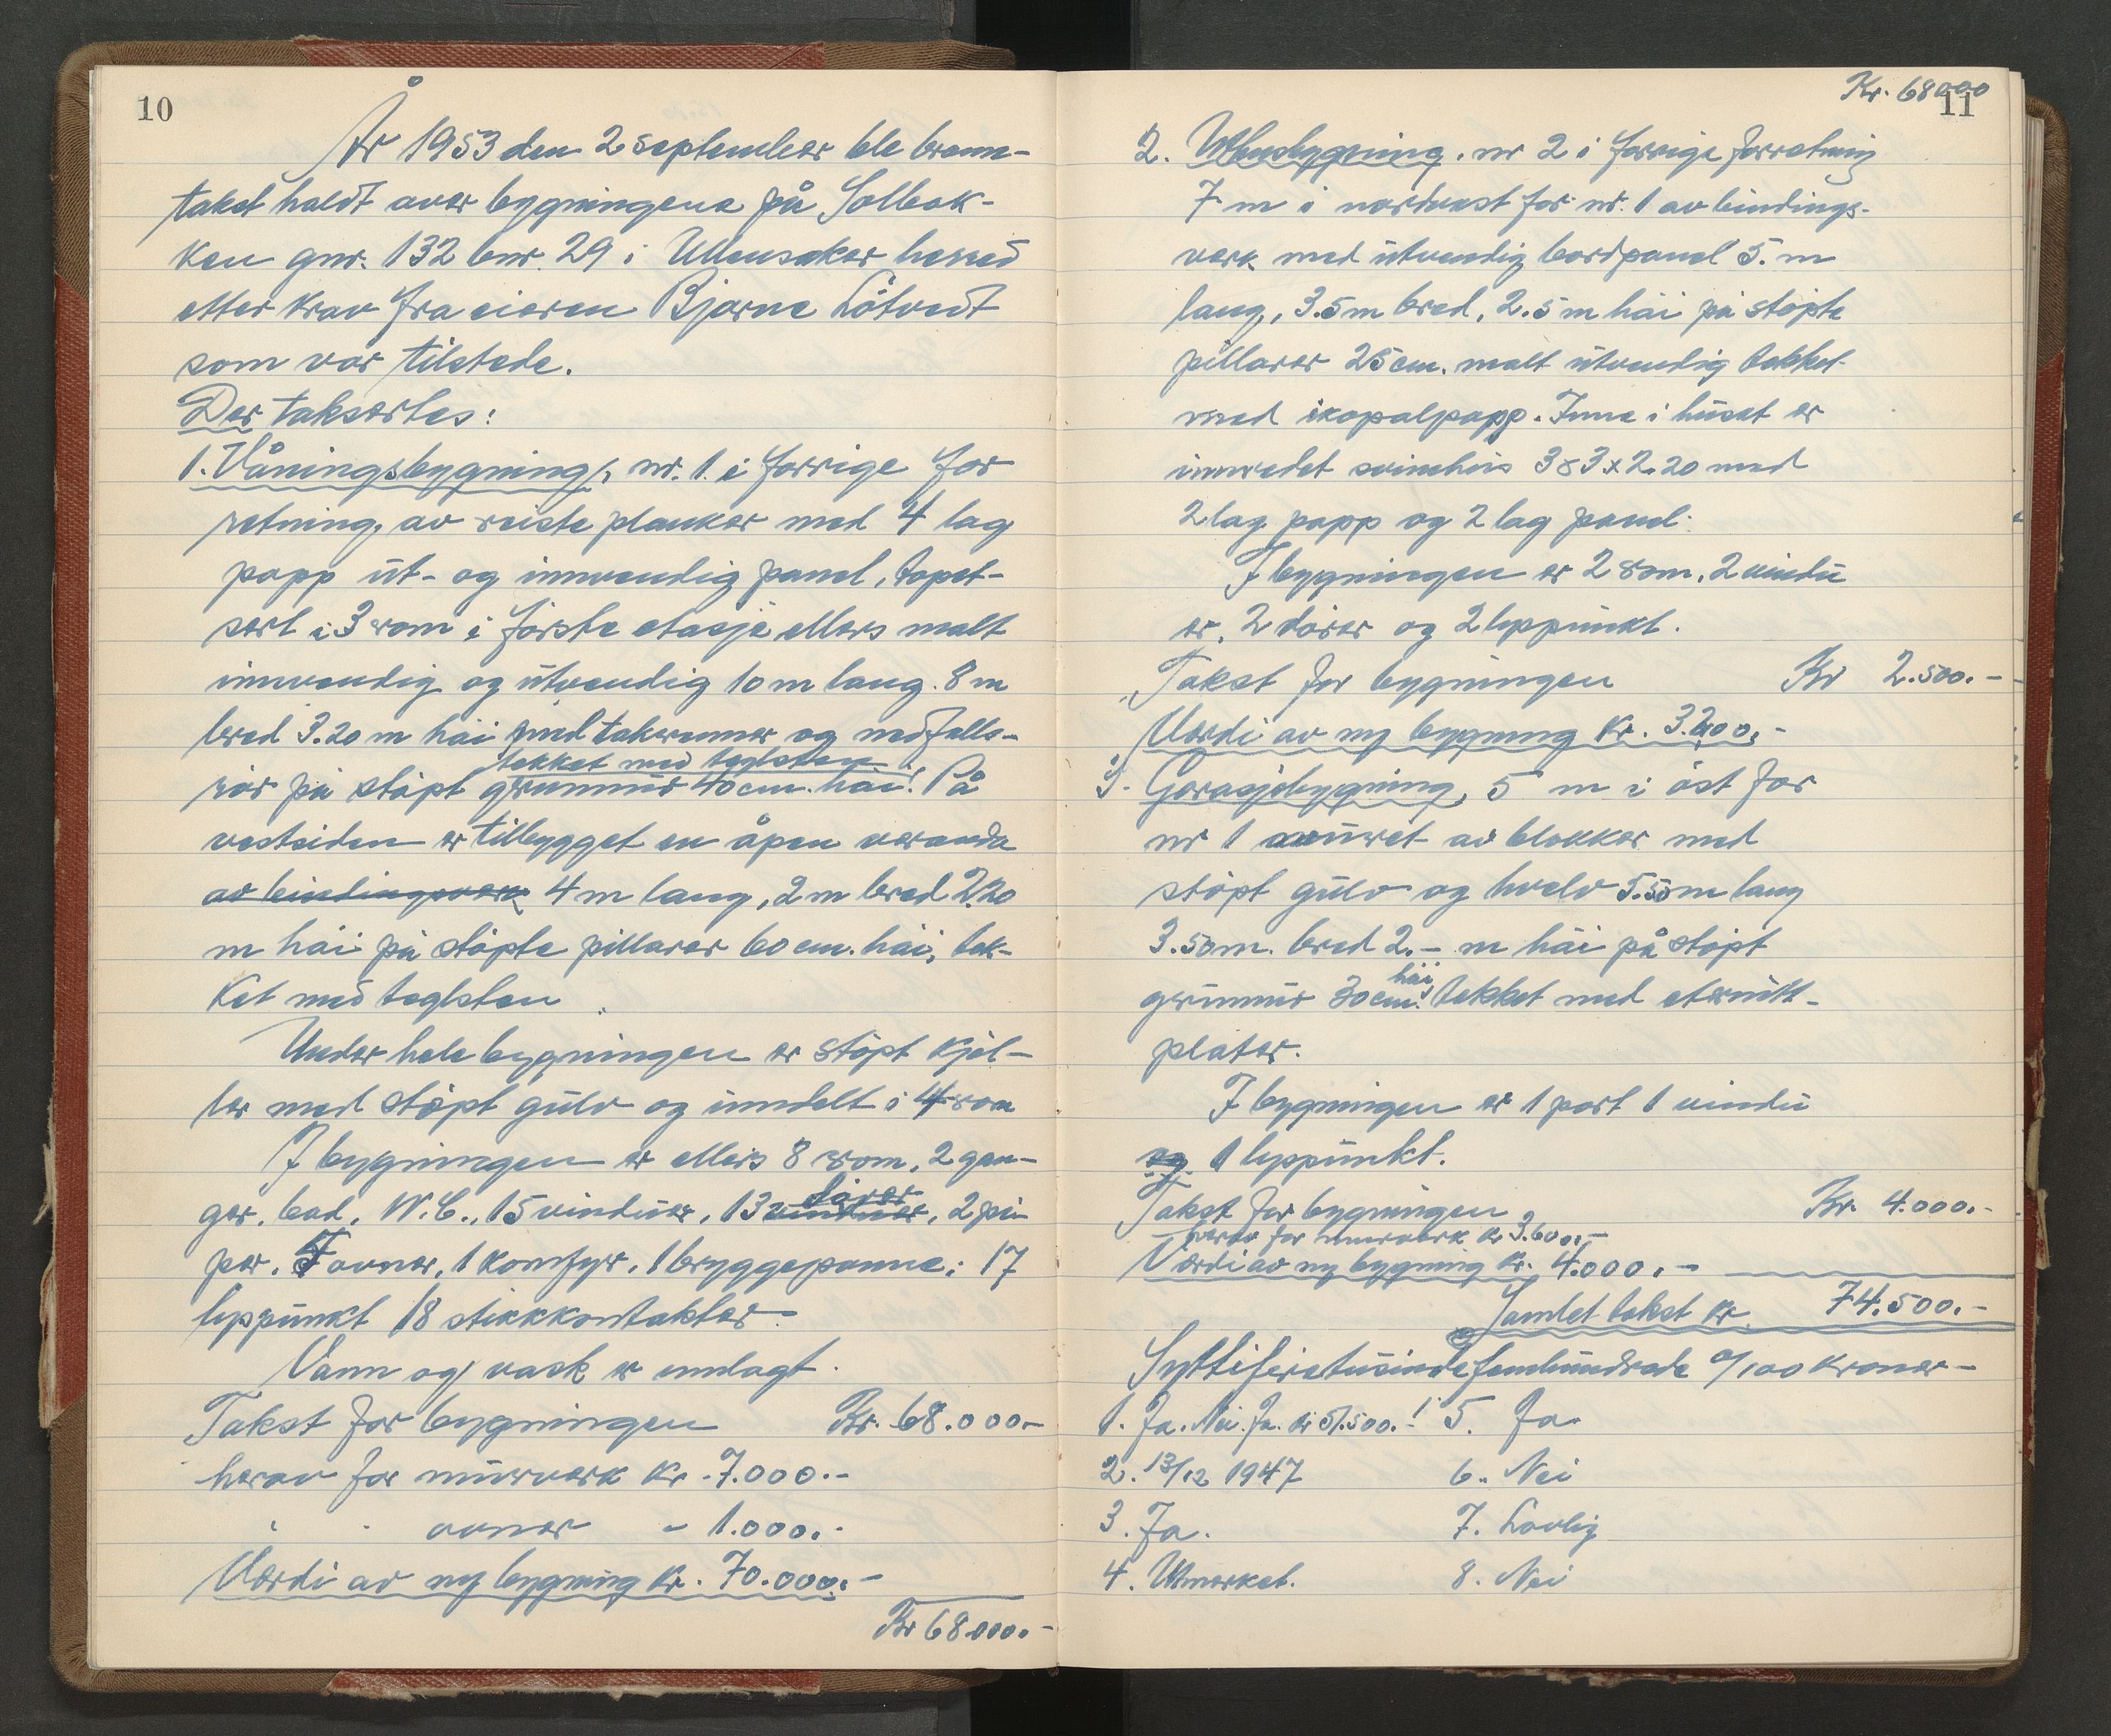 10
År 1953 den 2 september ble brann-
takst holdt over bygningene på Solbak-
ken gnr. 132 bnr. 29 i Ullensaker herred
etter krav fra eieren Bjarne Løtvedt
som var tilstede.
Der taksertes:
1. Våningsbygning, nr. 1 i forrige for
retning, av reiste planker med 4 lag
papp ut- og innvendig panel, tapet-
sert i 3 rom i første etasje ellers malt
innvendig og utvendig 10 m lang. 8 m
bred 3.20 m høi med takrenner og nedfalls-
tekket med teglsten
rør på støpt grunnmur 40 cm. høi. På
vestsiden er tilbygget en åpen veranda
av bindingsverk 4 m lang, 2 m bred 2.20
m høi på støpte pillarer 60 cm. høi, tek-
ket med teglsten
Under hele bygningen er støpt kjel-
ler med støpt gulv og inndelt i 4 rom
I bygningen er ellers 8 rom, 2 gan-
dører
ger, bad, W.C., 15 vinduer, 13 vinduer, 2 pi-
per, 7 ovner, 1 komfyr, 1 bryggepanne, 17
lyspunkt 18 stikkkontakter.
Vann og vask er innlagt.
Takst for bygningen Kr. 68.000.-
herav for murverk kr. 7.000.-
" - ovner - 1.000.-
Verdi av ny bygning kr. 70.000.-
Kr 68.000.-
Kr. 68000
11
2. Uthusbygning, nr 2 i forrige forretning
7 m i nordvest for nr. 1 av bindings-
verk med utvendig bordpanel 5. m
lang, 3.5 m bred, 2.5 m høi på støpte
pillarer 25 cm. malt utvendig tekket
med ikopalpapp. Inne i huset er
innredet svinehus 3x3x2.20 med
2 lag papp og 2 lag panel.
I bygningen er 2 rom, 2 vindu
er, 2 dører og 2 lyspunkt.
Takst for bygningen Kr 2.500.-
Verdi av ny bygning kr. 3.200.-
3. Garasjebygning, 5 m i øst for
nr 1 muret av blokker med
støpt gulv og hvelv 5.50 m lang
3.50 m. bred 2.- m høi på støpt
høi
grunnmur 30 cm. tekket med eternitt-
plater.
I bygningen er 1 port 1 vindu
og 1 lyspunkt.
Takst for bygningen Kr. 4.000.-
herav for murverk kr 3.600.-
Verdi av ny bygning kr. 4.000.-
Samlet takst kr. 74.500.-
Syttifiretusindefemhundrede 0/100 kroner-
1. Ja. Nei. Ja. kr 51.500.-! 5. Ja
2. 13/12 1947 6. Nei
3. Ja. 7. Lovlig
4. Utmerket. 8. Nei